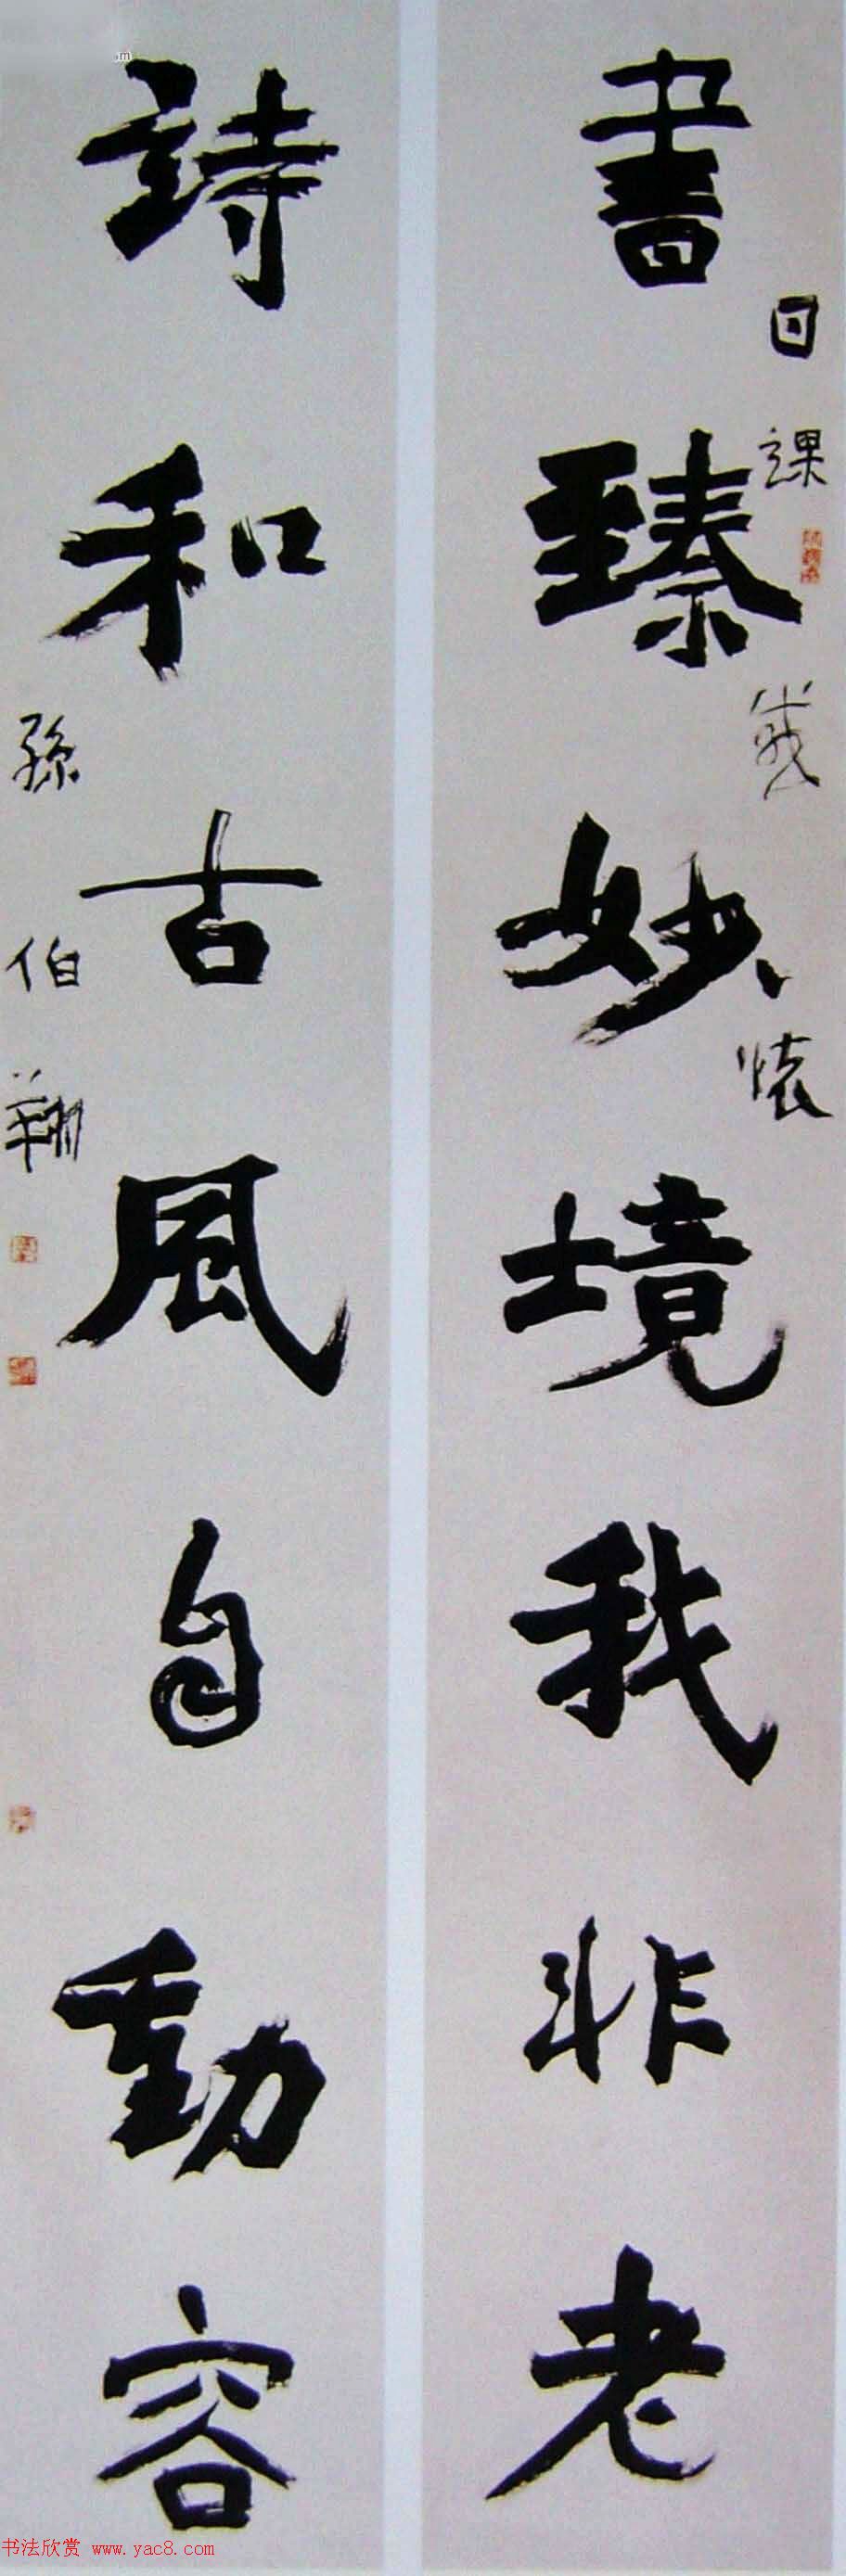 書臻妙境我非老
日課
懷
詩和古風自動容
孫伯翔
书法欣赏 www.yac8.com